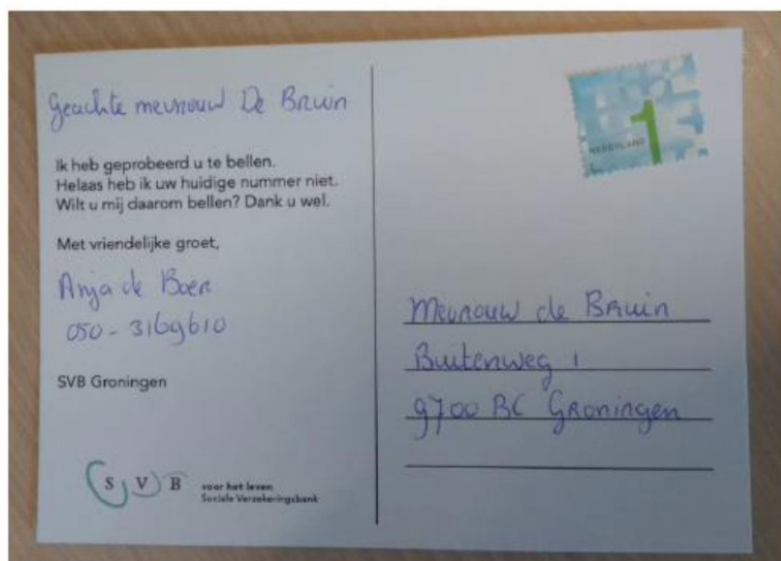 Geachte mevrouw De Bruin
Ik heb geprobeerd u te bellen.
Helaas heb ik uw huidige nummer niet.
Wilt u mij daarom bellen? Dank u wel.
Met vriendelijke groet,
Anja de Boer
050-3169610
SVB Groningen
S V B
voor het leven
Sociale Verzekeringsbank
NEDERLAND 1
Mevrouw de Bruin
Buitenweg 1
9700 BC Groningen